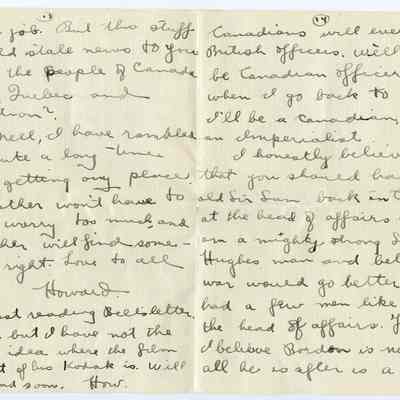 13
job. But this stuff
old stale news to you
the people of Canada
Quebec and
I have rambled
quite a long time
getting any place.
won't have to
worry too much, and
will find some-
right. Love to all
Howard.
reading Bell's letter.
but I have not the
idea where the film
of his Kodak is. Will
soon. How.
14
Canadians will ever
British officers. Well
be Canadian officer
when I go back to
I'll be a Canadian,
an Imperialist.
I honestly believe
that you should have
old Sir Sam back into
at the head of affairs
am a mighty strong S
Hughes man and bel
war would go better
had a few men like
the head of affairs.
I believe Borden is no
all he is after is a